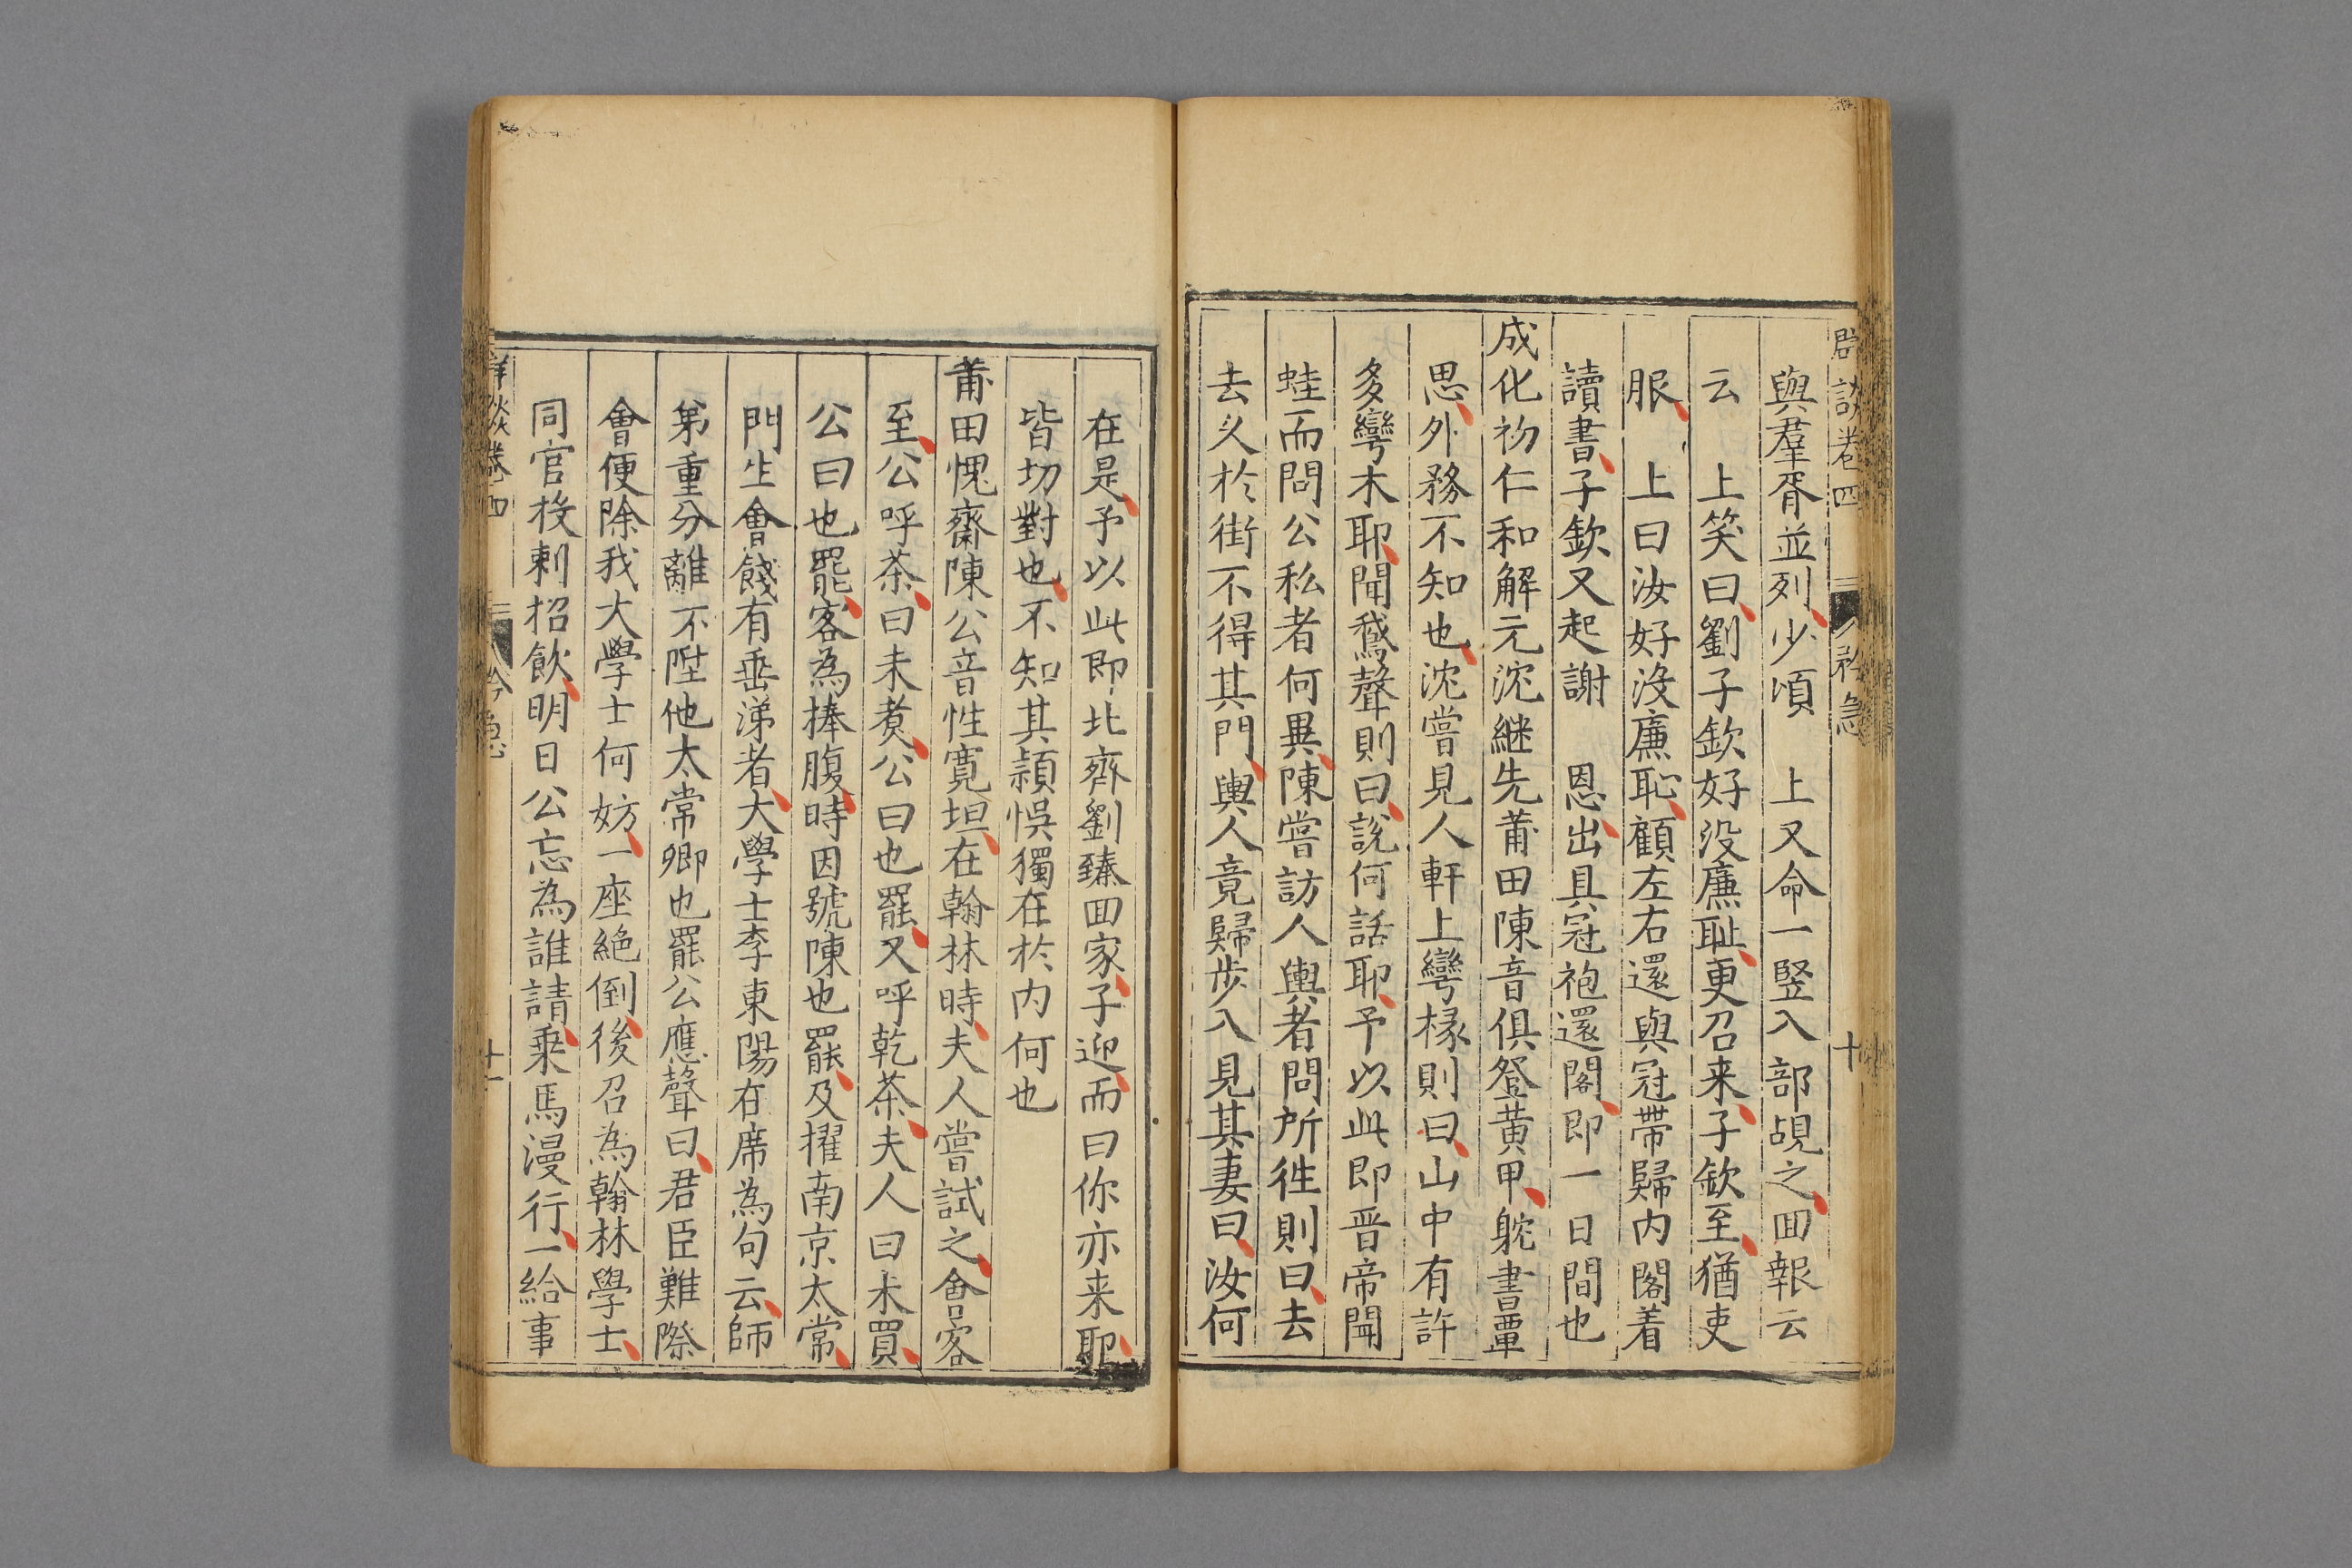 與羣胥並列少頃　上又命一竪入部覘之囬報云
云　上笑曰劉子欽好没廉耻更召来子欽至猶吏
服　上曰汝好没廉恥顧左右還與冠帶歸内閣着
讀書子欽又起謝　恩出具冠袍還閣即一日間也
成化初仁和解元沈継先莆田陳音俱登黄甲躭書覃
思外務不知也沈嘗見人軒上彎椽則曰山中有許
多彎木耶聞鵞聲則曰説何話耶予以此即晋帝聞
蛙而問公私者何異陳嘗訪人輿者問所徃則曰去
去乆於街不得其門輿人竟歸步入見其妻曰汝何
在是予以此即北齊劉臻囬家子迎而曰你亦来耶
皆切對也不知其穎悮獨在於内何也
莆田愧齋陳公音性寛坦在翰林時夫人嘗試之會客
至公呼茶曰未煑公曰也罷又呼乾茶夫人曰未買
公曰也罷客為捧腹時因號陳也罷及擢南京太常
門生會餞有垂涕者大學士李東陽在席為句云師
弟重分離不陞他太常卿也罷公應聲曰君臣難際
會便除我大學士何妨一座絶倒後召為翰林學士
同官投刺招飲明日公忘為誰請乗馬漫行一給事
卷四
十一